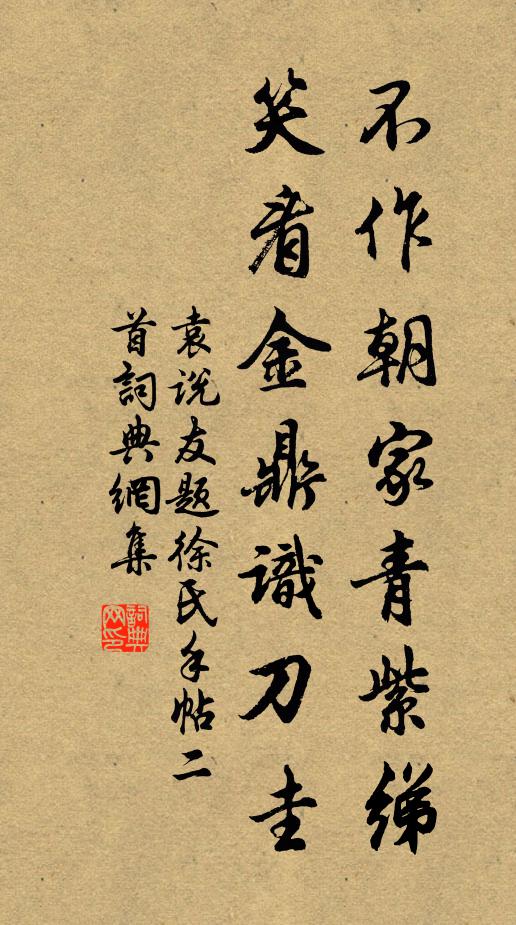 不作朝家青紫綈
笑看金鼎識刀圭
袁说友题徐氏手帖二
首詞典網集
詞典
网印